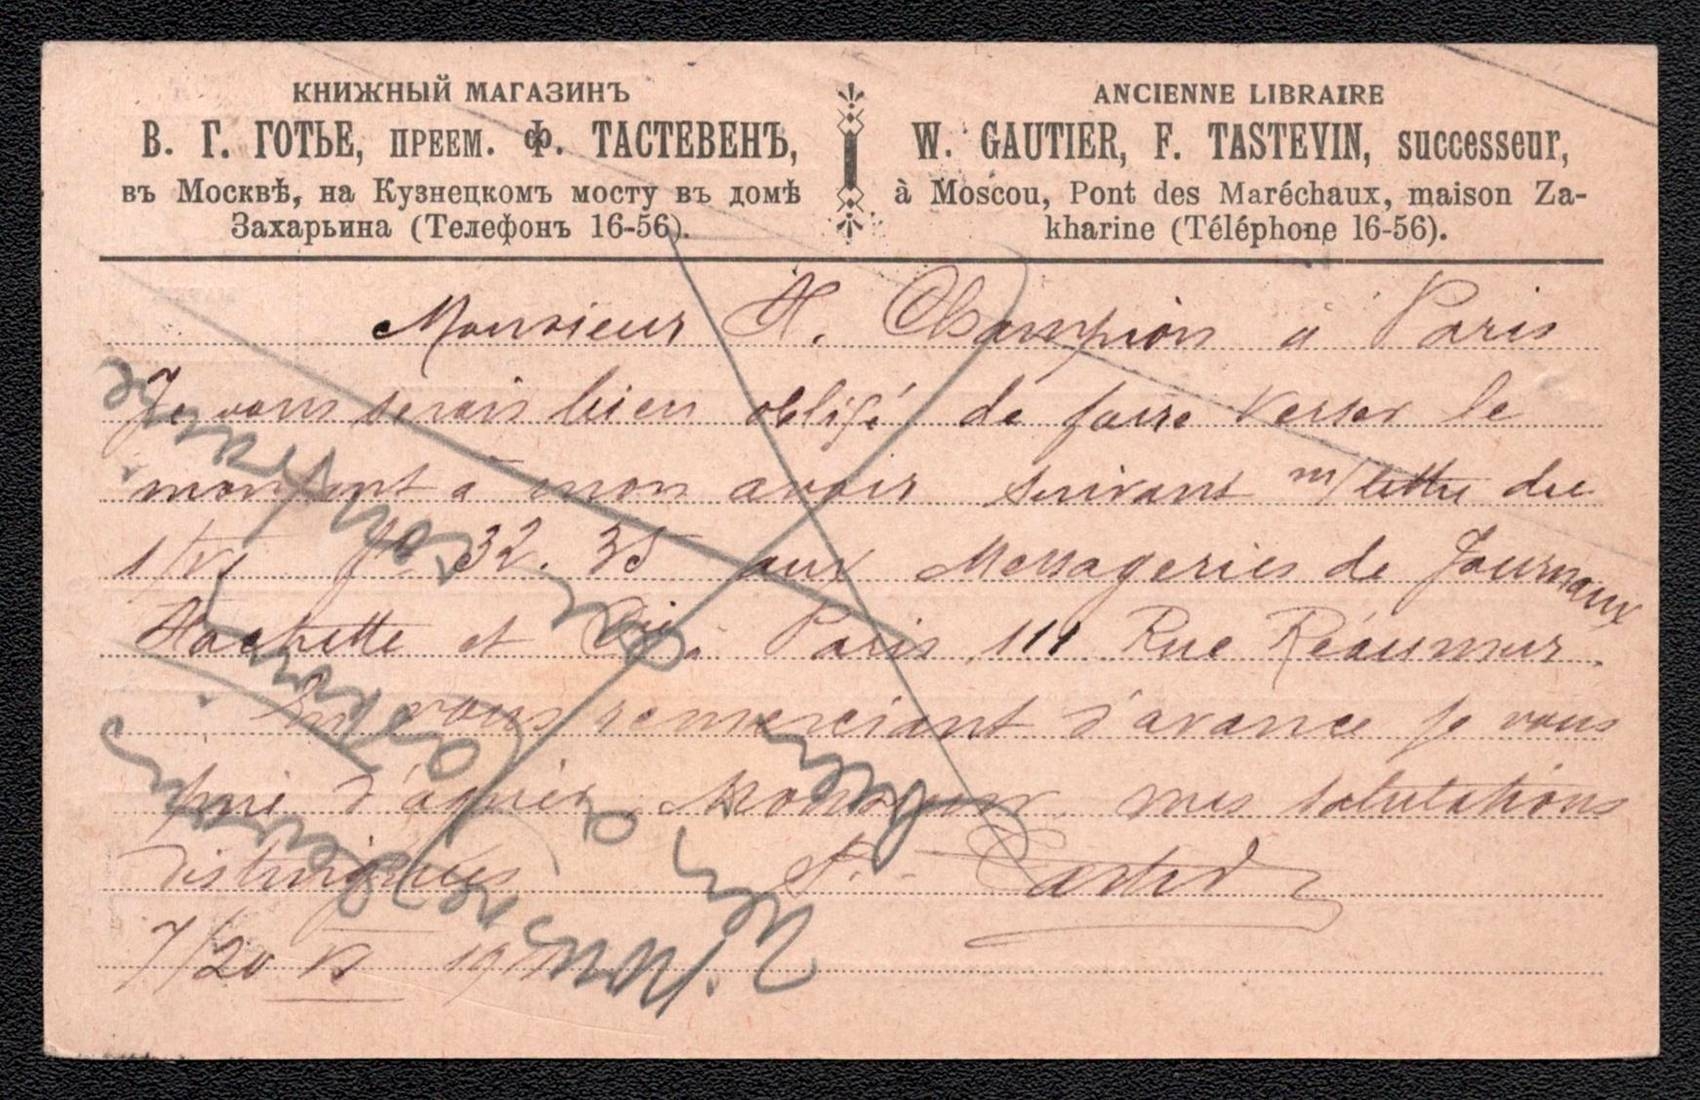 КНИЖНЫЙ МАГАЗИНЪ
В. Г. ГОТЬЕ, ПРЕЕМ. Ф. ТАСТЕВЕНЪ,
въ Москвѣ, на Кузнецкомъ мосту въ домѣ
Захарьина (Телефонъ 16-56).
ANCIENNE LIBRAIRE
W. GAUTIER, F. TASTEVIN, successeur,
à Moscou, Pont des Maréchaux, maison Za-
kharine (Téléphone 16-56).
Monsieur H. Champion à Paris
Je vous serais bien obligé de faire verser le
montant à mon avoir suivant m/lettre du
32.35 aux Messageries de Journaux
Hachette et Cie. Paris 111 Rue Réaumur.
En vous remerciant d'avance je vous
prie d'agréer, Monsieur, mes salutations
distinguées
7/20
Nous ne devons
rien à
au contraire